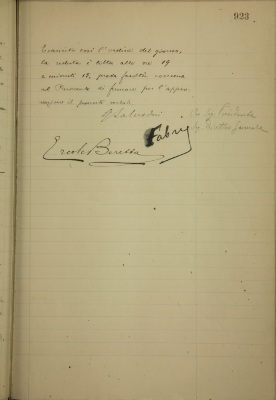 923
Esaurito così l'ordine del giorno,
la seduta è tolta alle ore 19
e minuti 12, previa facoltà concessa
al Presidente di firmare per l'appro-
vazione il presente verbale.
G Salvadori
Fabri
Ercole Beretta